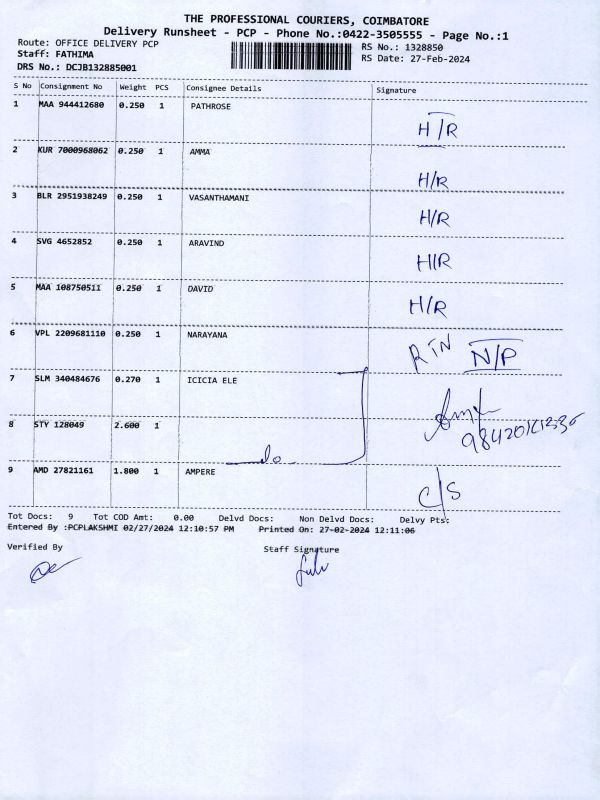 THE PROFESSIONAL COURIERS, COIMBATORE
Delivery Runsheet - PCP - Phone No.:0422-3505555 - Page No.:1
Route: OFFICE DELIVERY PCP
RS No.: 1328850
Staff: FATHIMA
RS Date: 27-Feb-2024
DRS No.: DCJB132885001
S No Consignment No Weight PCS Consignee Details Signature
1 MAA 944412680 0.250 1 PATHROSE H/R
2 KUR 7000968062 0.250 1 AMMA H/R
3 BLR 2951938249 0.250 1 VASANTHAMANI H/R
4 SVG 4652852 0.250 1 ARAVIND H/R
5 MAA 108750511 0.250 1 DAVID H/R
6 VPL 2209681110 0.250 1 NARAYANA RTN N/P
7 SLM 340484676 0.270 1 ICICIA ELE
8 STY 128049 2.600 1 do
9 AMD 27821161 1.800 1 AMPERE C/S
Tot Docs: 9 Tot COD Amt: 0.00 Delvd Docs: Non Delvd Docs: Delvy Pts:
Entered By :PCPLAKSHMI 02/27/2024 12:10:57 PM Printed On: 27-02-2024 12:11:06
Verified By Staff Signature